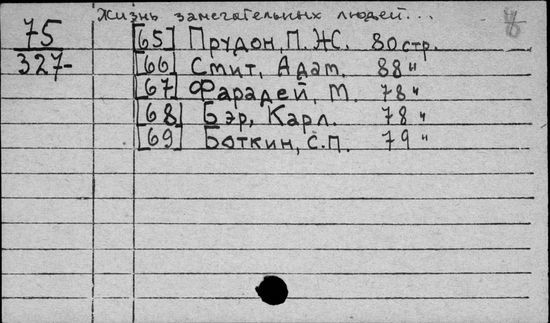 Жизнь замечательных людей...
75
327-
[65] Прудон, П. Ж. 80 стр.
[66] Смит, Адам. 88 "
[67] Фарадей, М. 78 "
[68] Бэр, Карл. 78 "
[69] Боткин, С.П. 79 "